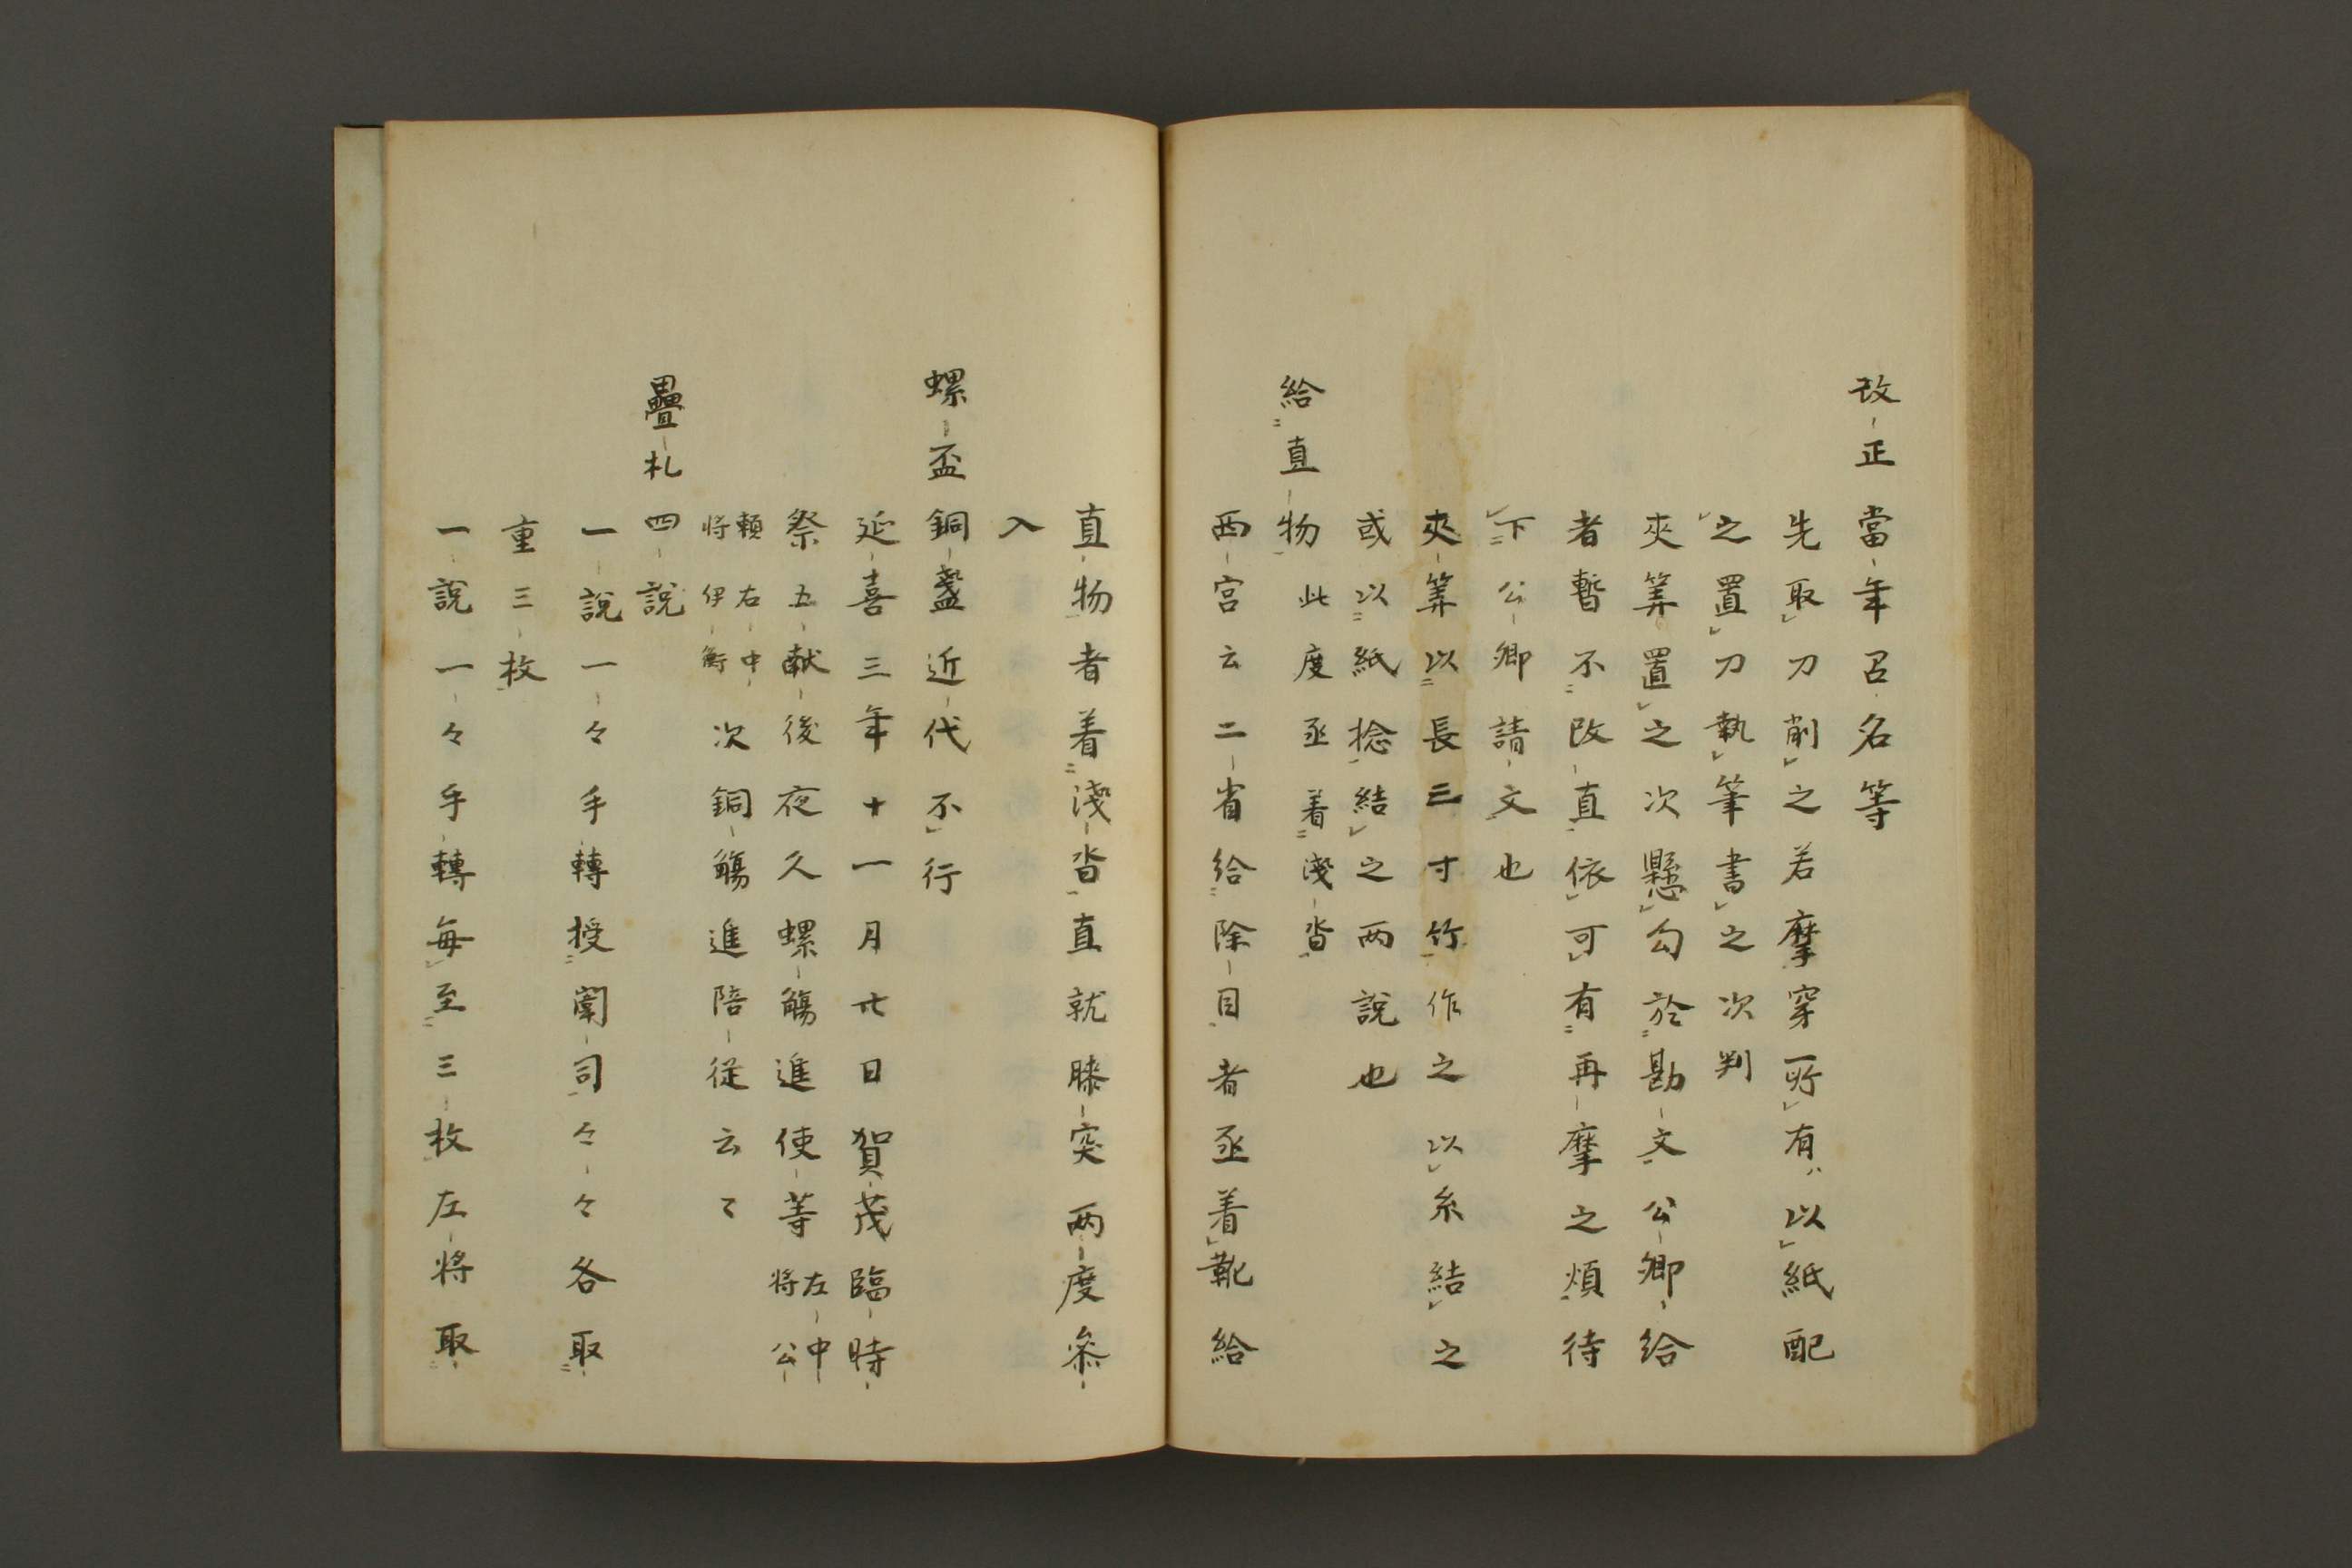 改正當年召名等
先取刀削之若摩穿所有以紙配
之置刀執筆書之次判
夾筭置之次懸勾於勘文公卿給
者暫不改直依可有再摩之煩待
下公卿請文也
夾筭以長三寸竹作之以糸結之
或以紙捻結之两說也
給直物此度丞着淺沓
西宮云二省給除目者丞着靴給
直物者着淺沓直就膝突两度参
入
螺盃銅盞近代不行
延喜三年十一月廿日賀茂臨時
祭五献後夜久螺觴進使等左中
将公
頼右中
将伊衡次銅觴進陪従云々
疊札四說
一說一々手轉授闈司々々各取
重三枚
一說一々手轉每至三枚左将取